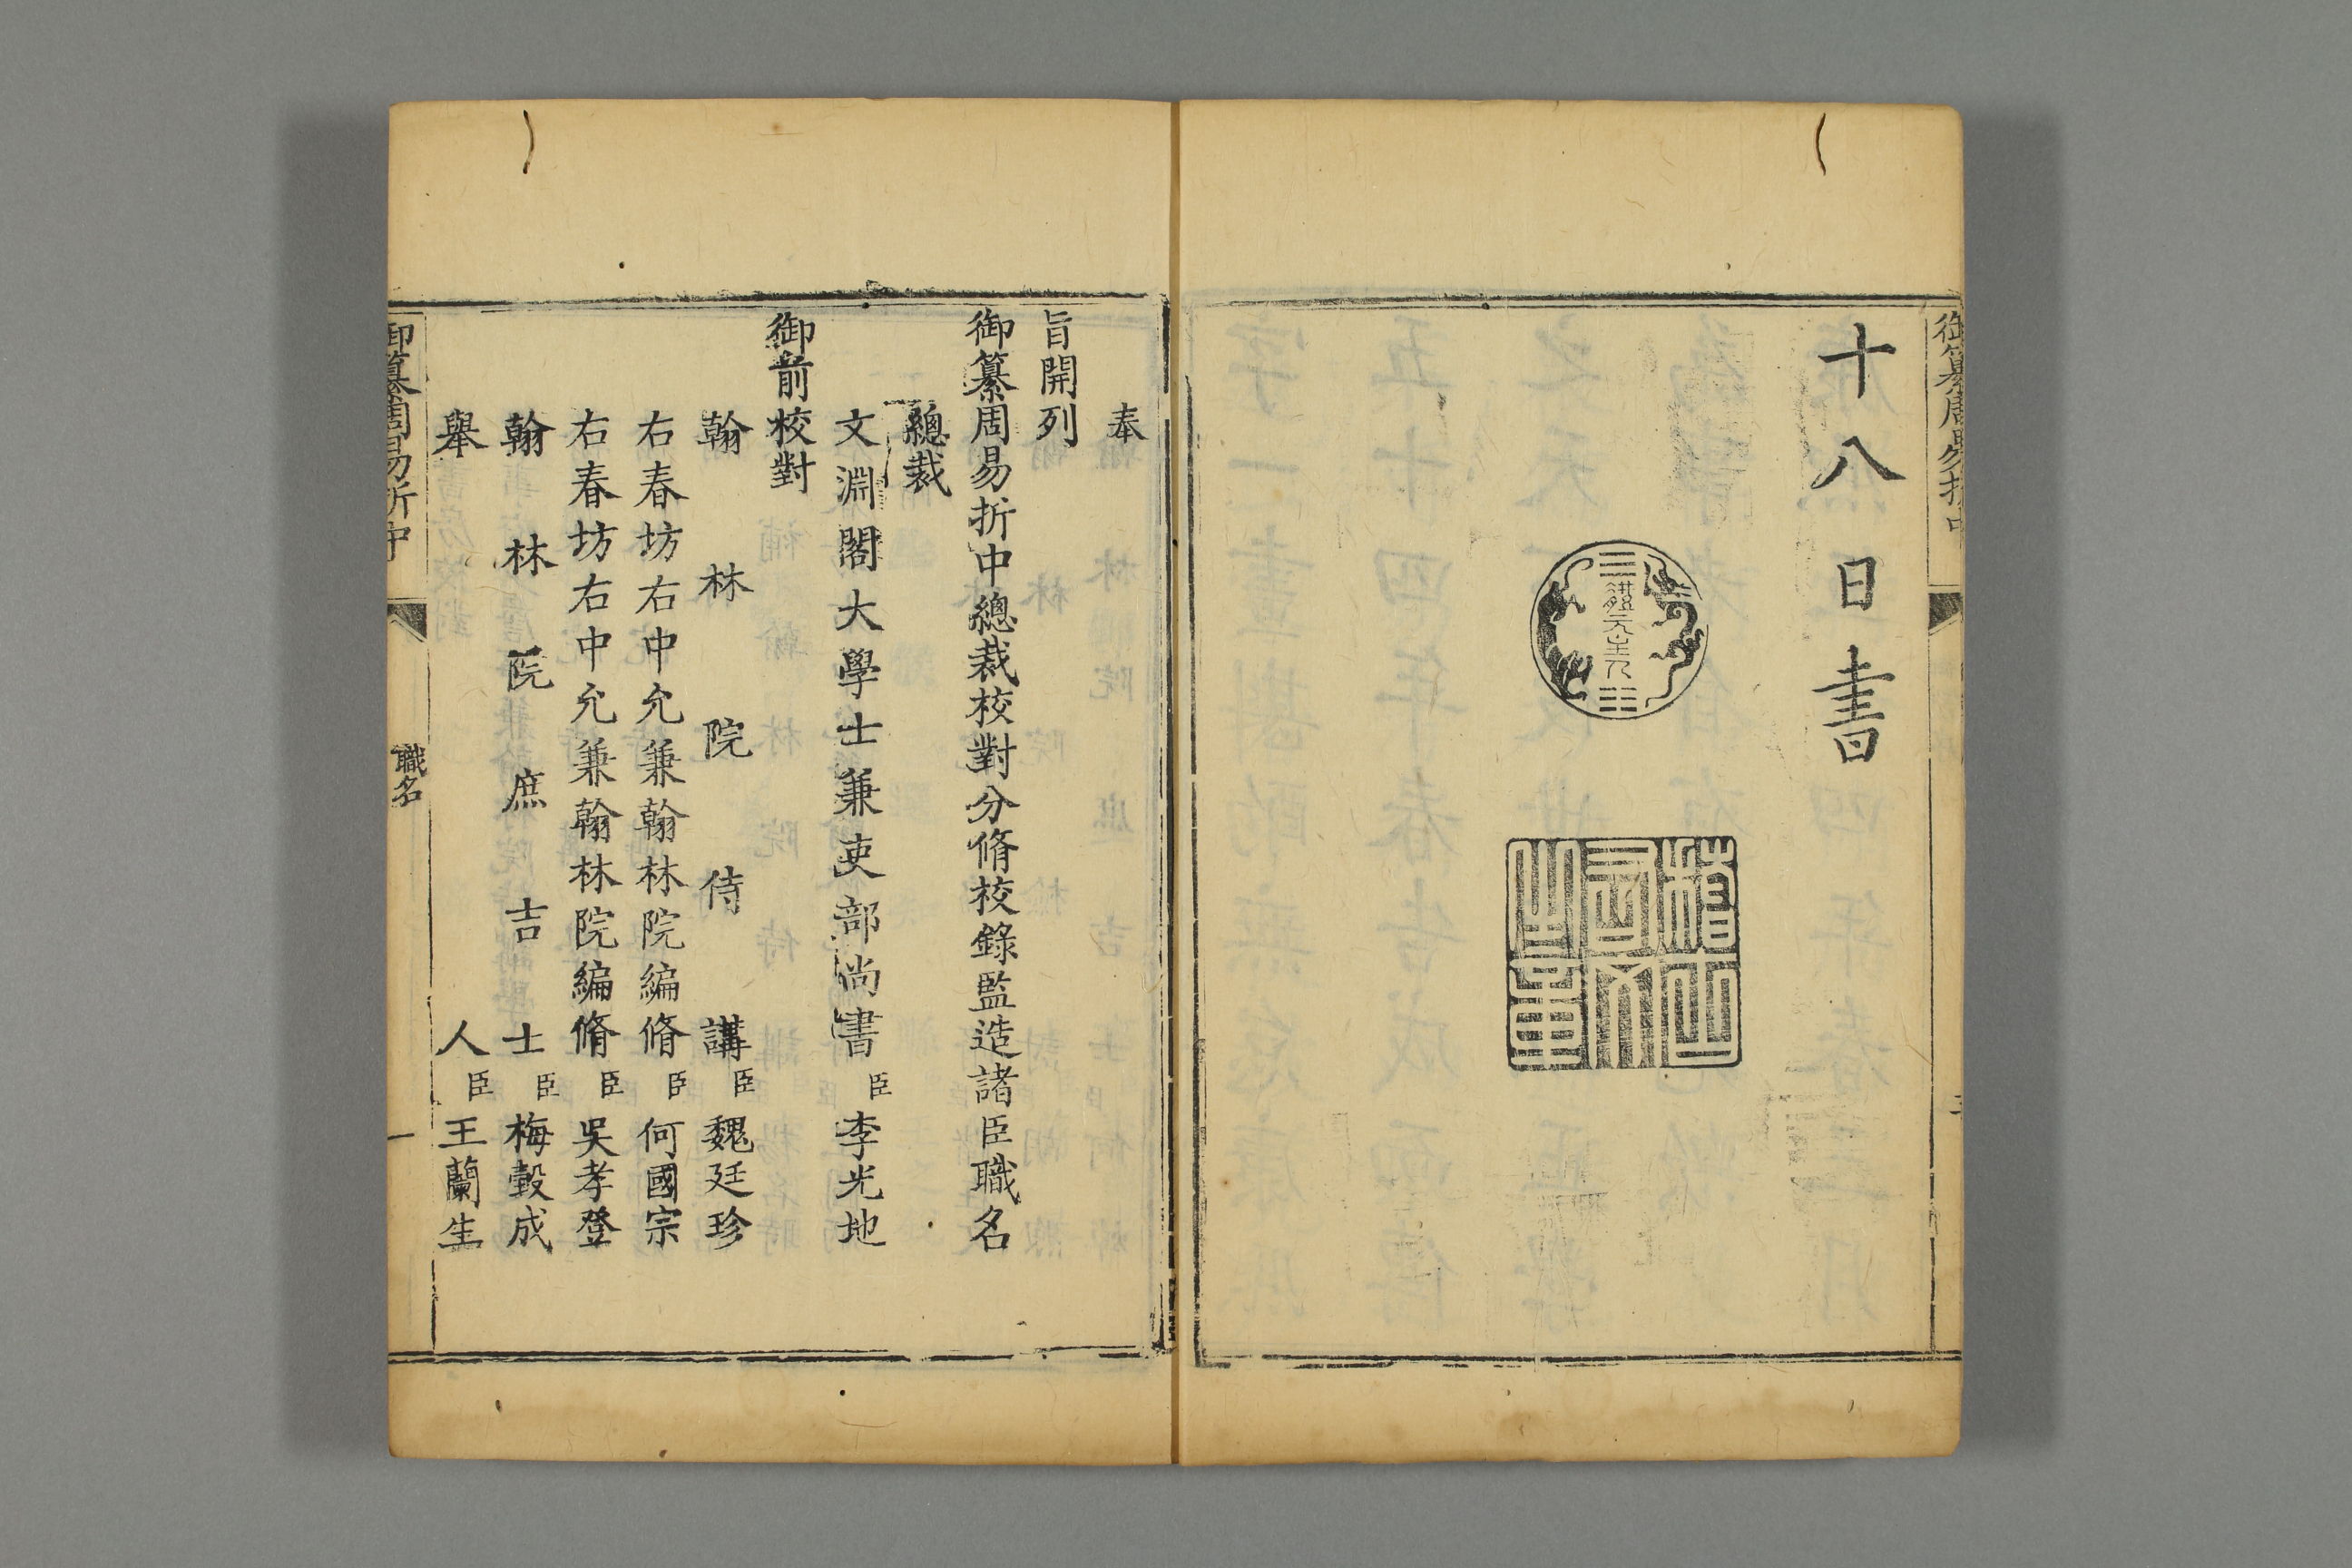 御纂周易折中
十八日書
體元主人
稽古右文之章
奉
旨開列
御纂周易折中總裁校對分脩校錄監造諸臣職名
總裁
文淵閣大學士兼吏部尚書臣李光地
御前校對
翰林院侍講臣魏廷珍
右春坊右中允兼翰林院編脩臣何國宗
右春坊右中允兼翰林院編脩臣吳孝登
翰林院庶吉士臣梅瑴成
舉人臣王蘭生
御纂周易折中
職名
一